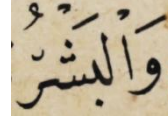 وَالْبَشَرُ